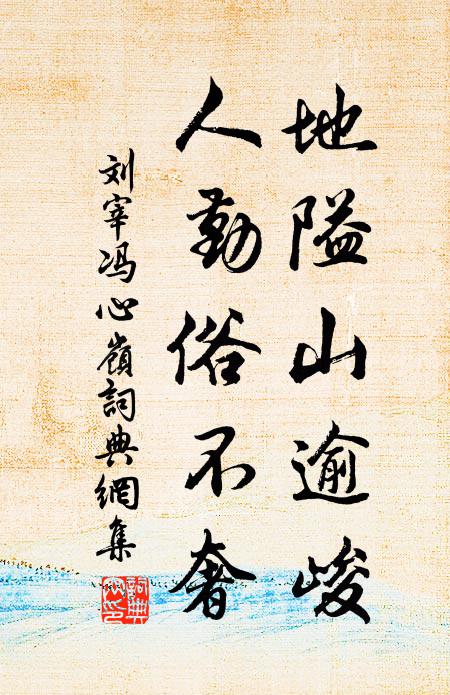 地隘山逾峻
人勤俗不奢
刘宰冯心岭詞典網集